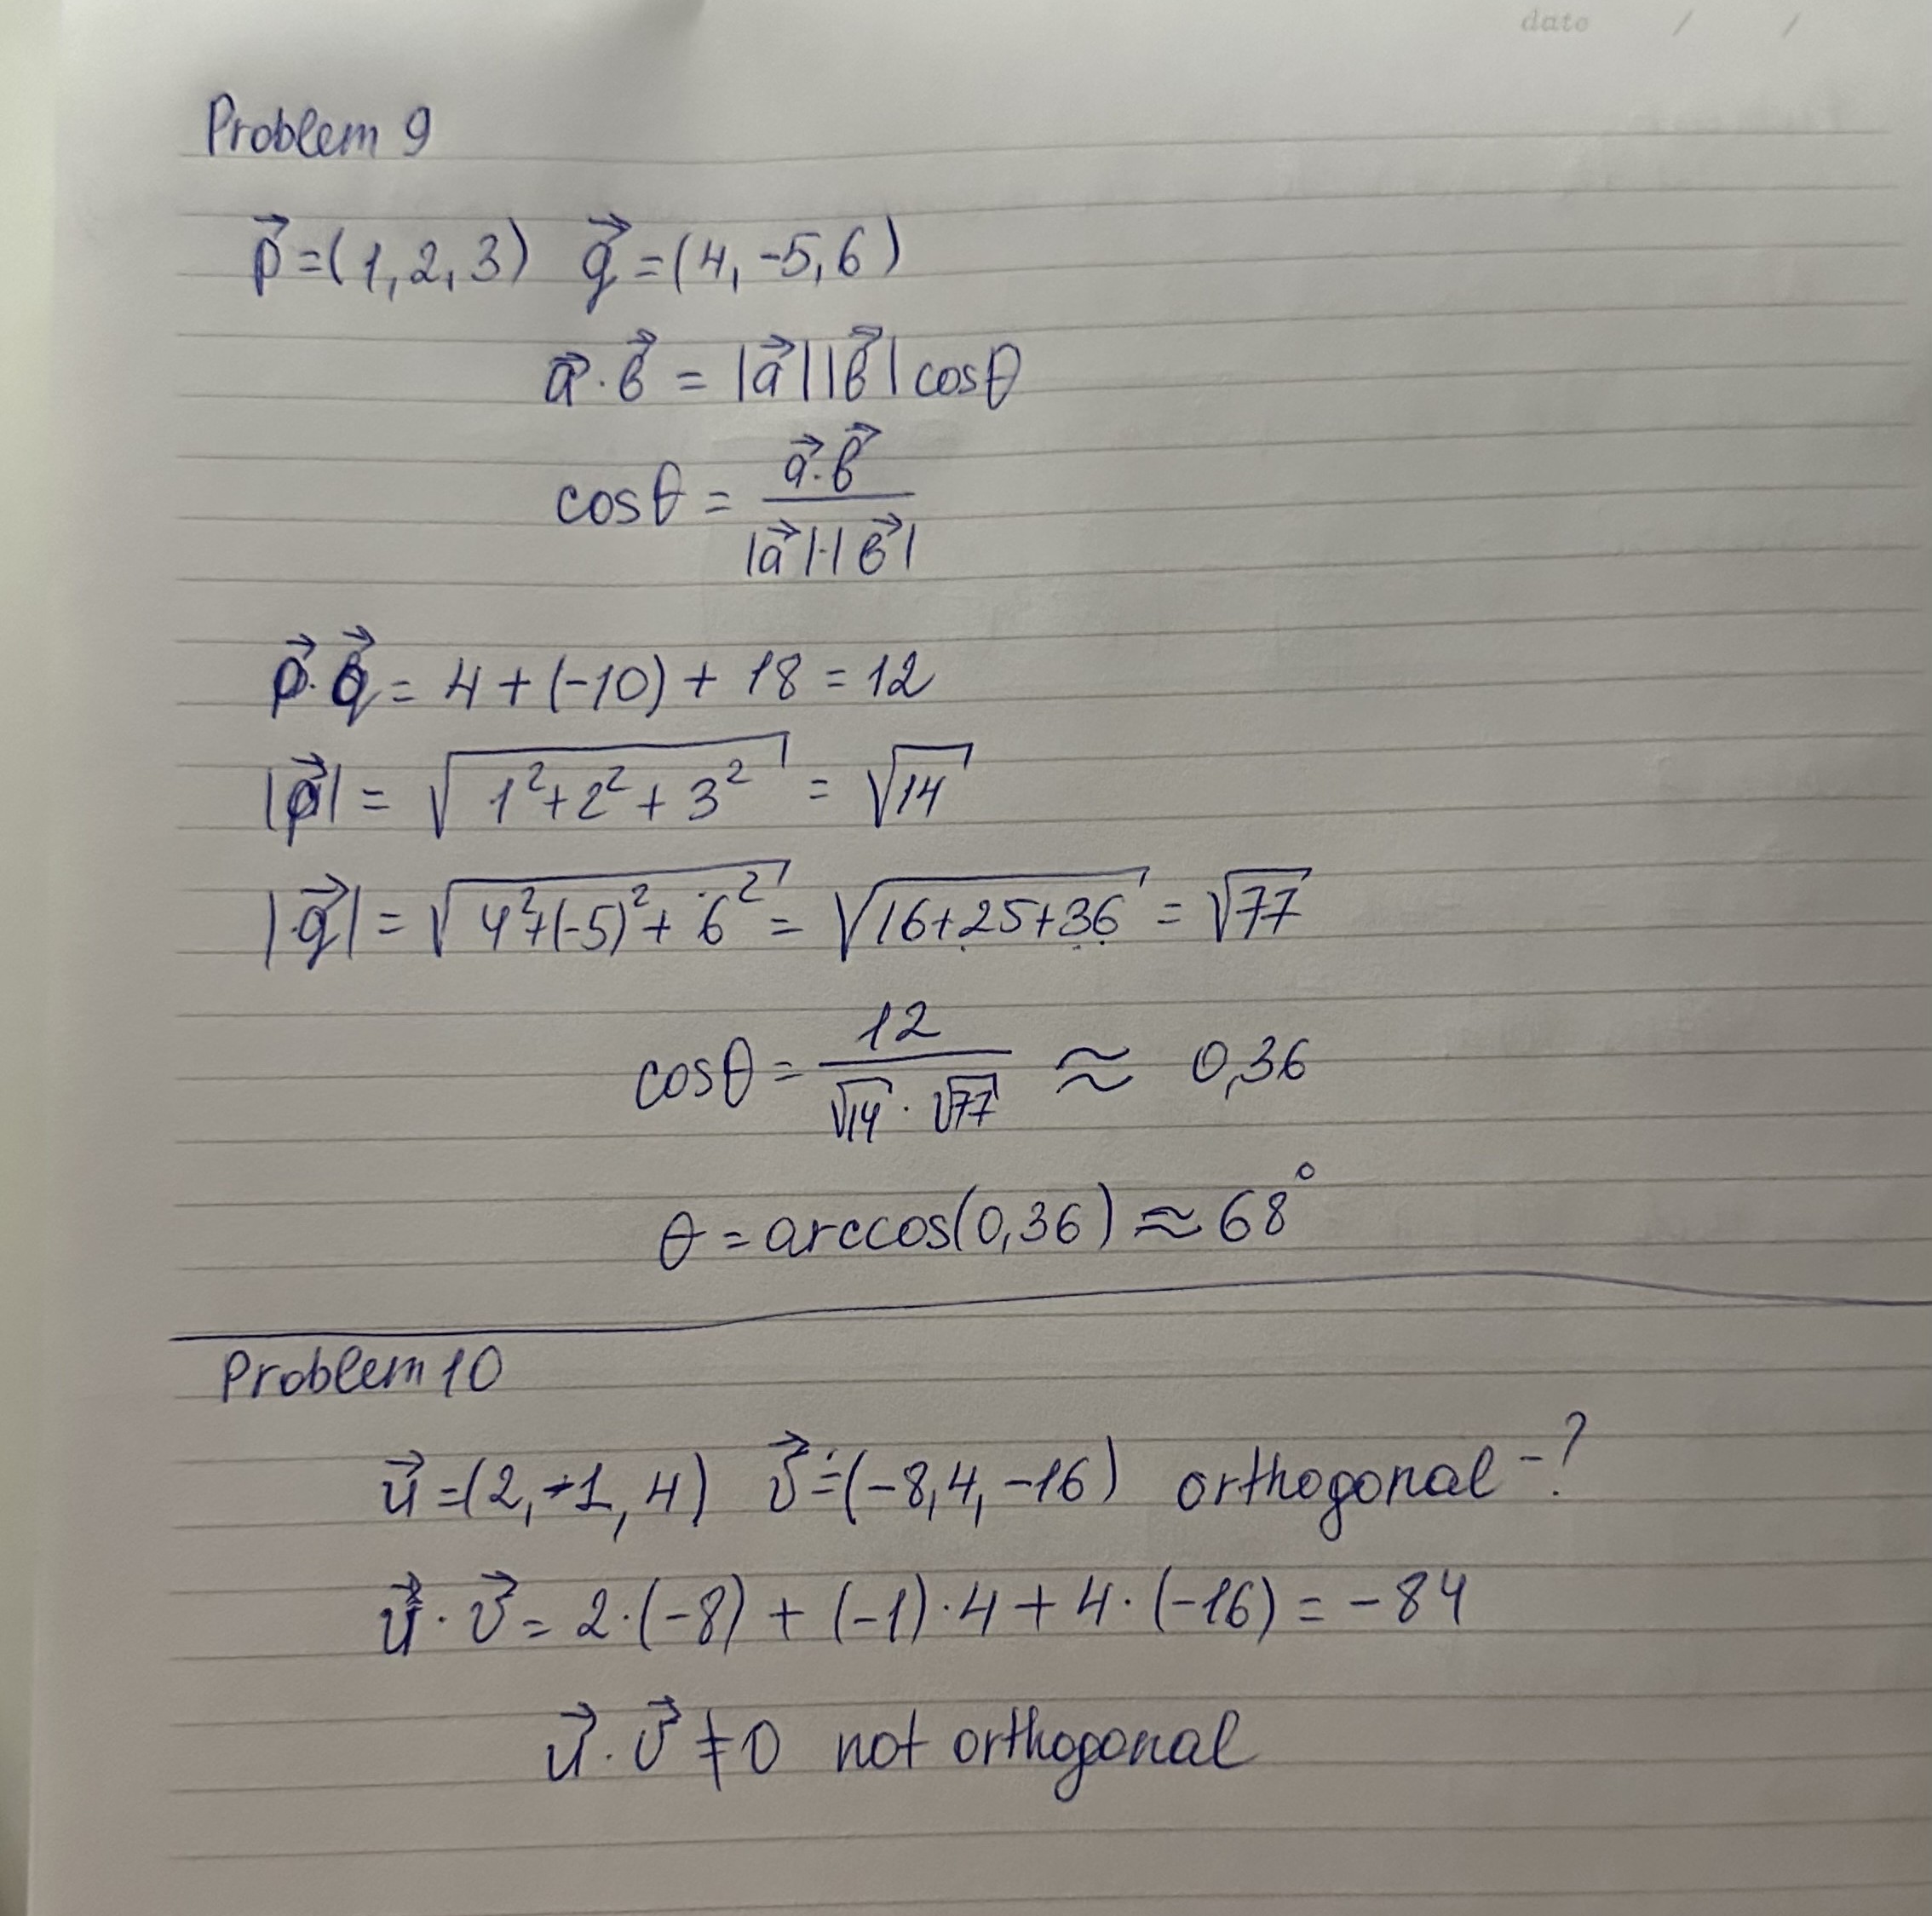 dato / /
Problem 9
p⃗ = (1, 2, 3) q⃗ = (4, -5, 6)
a⃗ · b⃗ = |a⃗| |b⃗| cosθ
cosθ = (a⃗ · b⃗) / (|a⃗| · |b⃗|)
p⃗ · q⃗ = 4 + (-10) + 18 = 12
|p⃗| = √(1² + 2² + 3²) = √14
|q⃗| = √(4² + (-5)² + 6²) = √(16 + 25 + 36) = √77
cosθ = 12 / (√14 · √77) ≈ 0,36
θ = arccos(0,36) ≈ 68°
Problem 10
u⃗ = (2, -1, 4) v⃗ = (-8, 4, -16) orthogonal - ?
u⃗ · v⃗ = 2 · (-8) + (-1) · 4 + 4 · (-16) = -84
u⃗ · v⃗ ≠ 0 not orthogonal